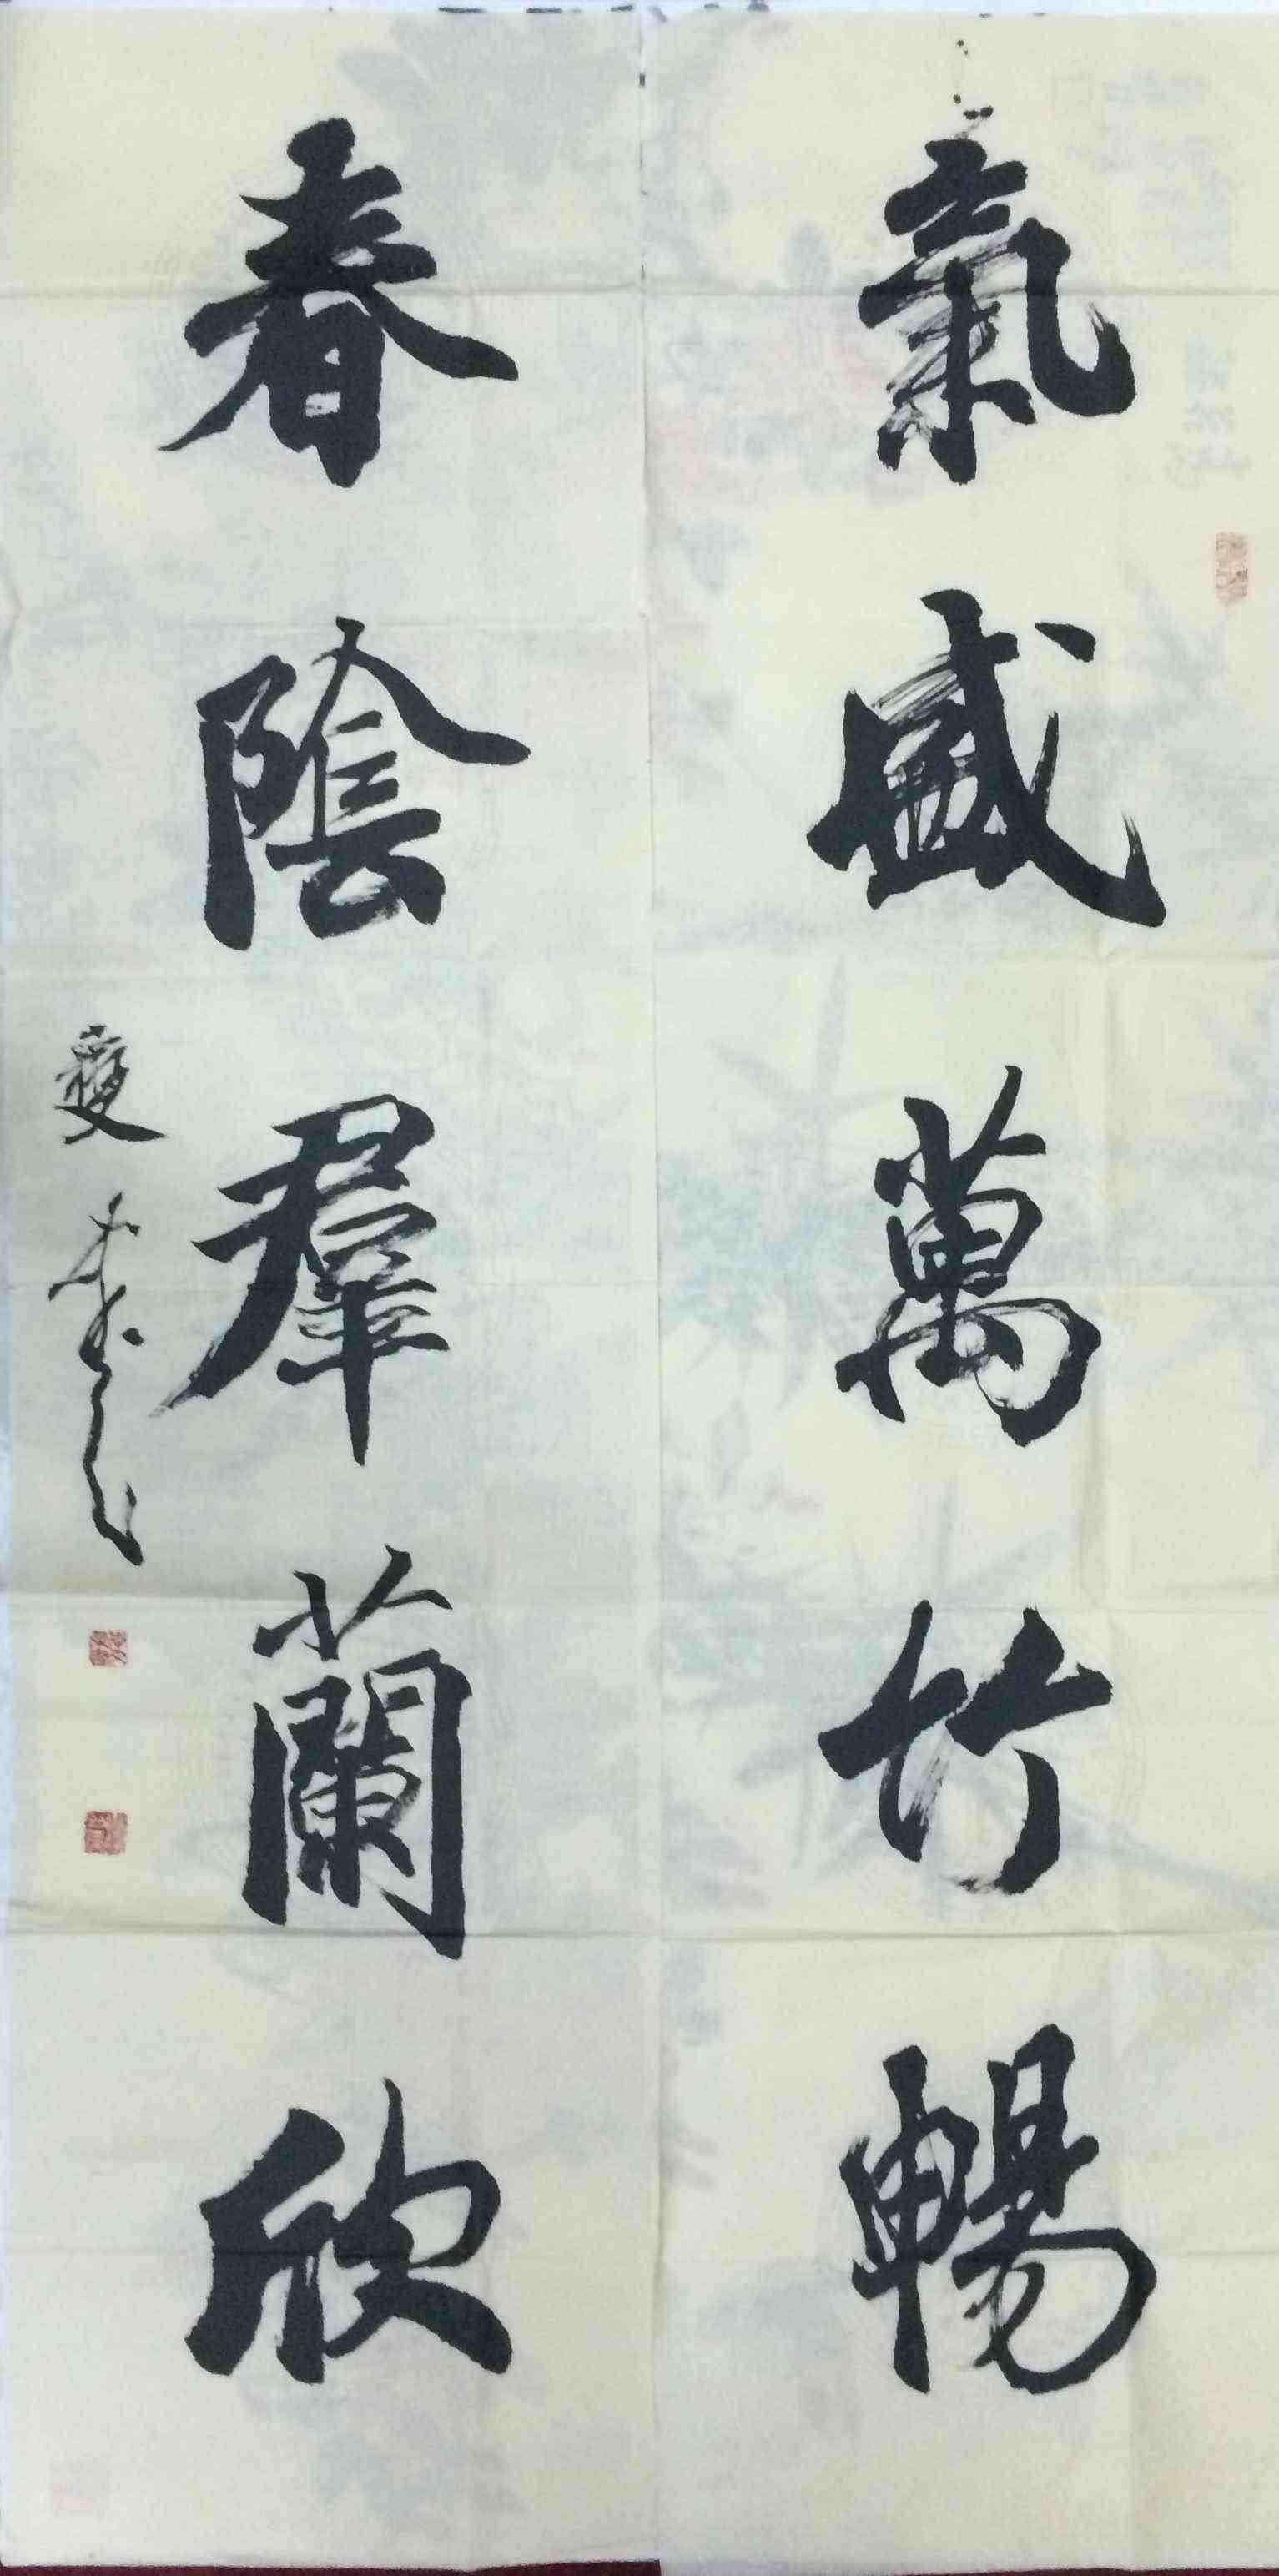 氣盛萬竹暢
春陰羣蘭欣